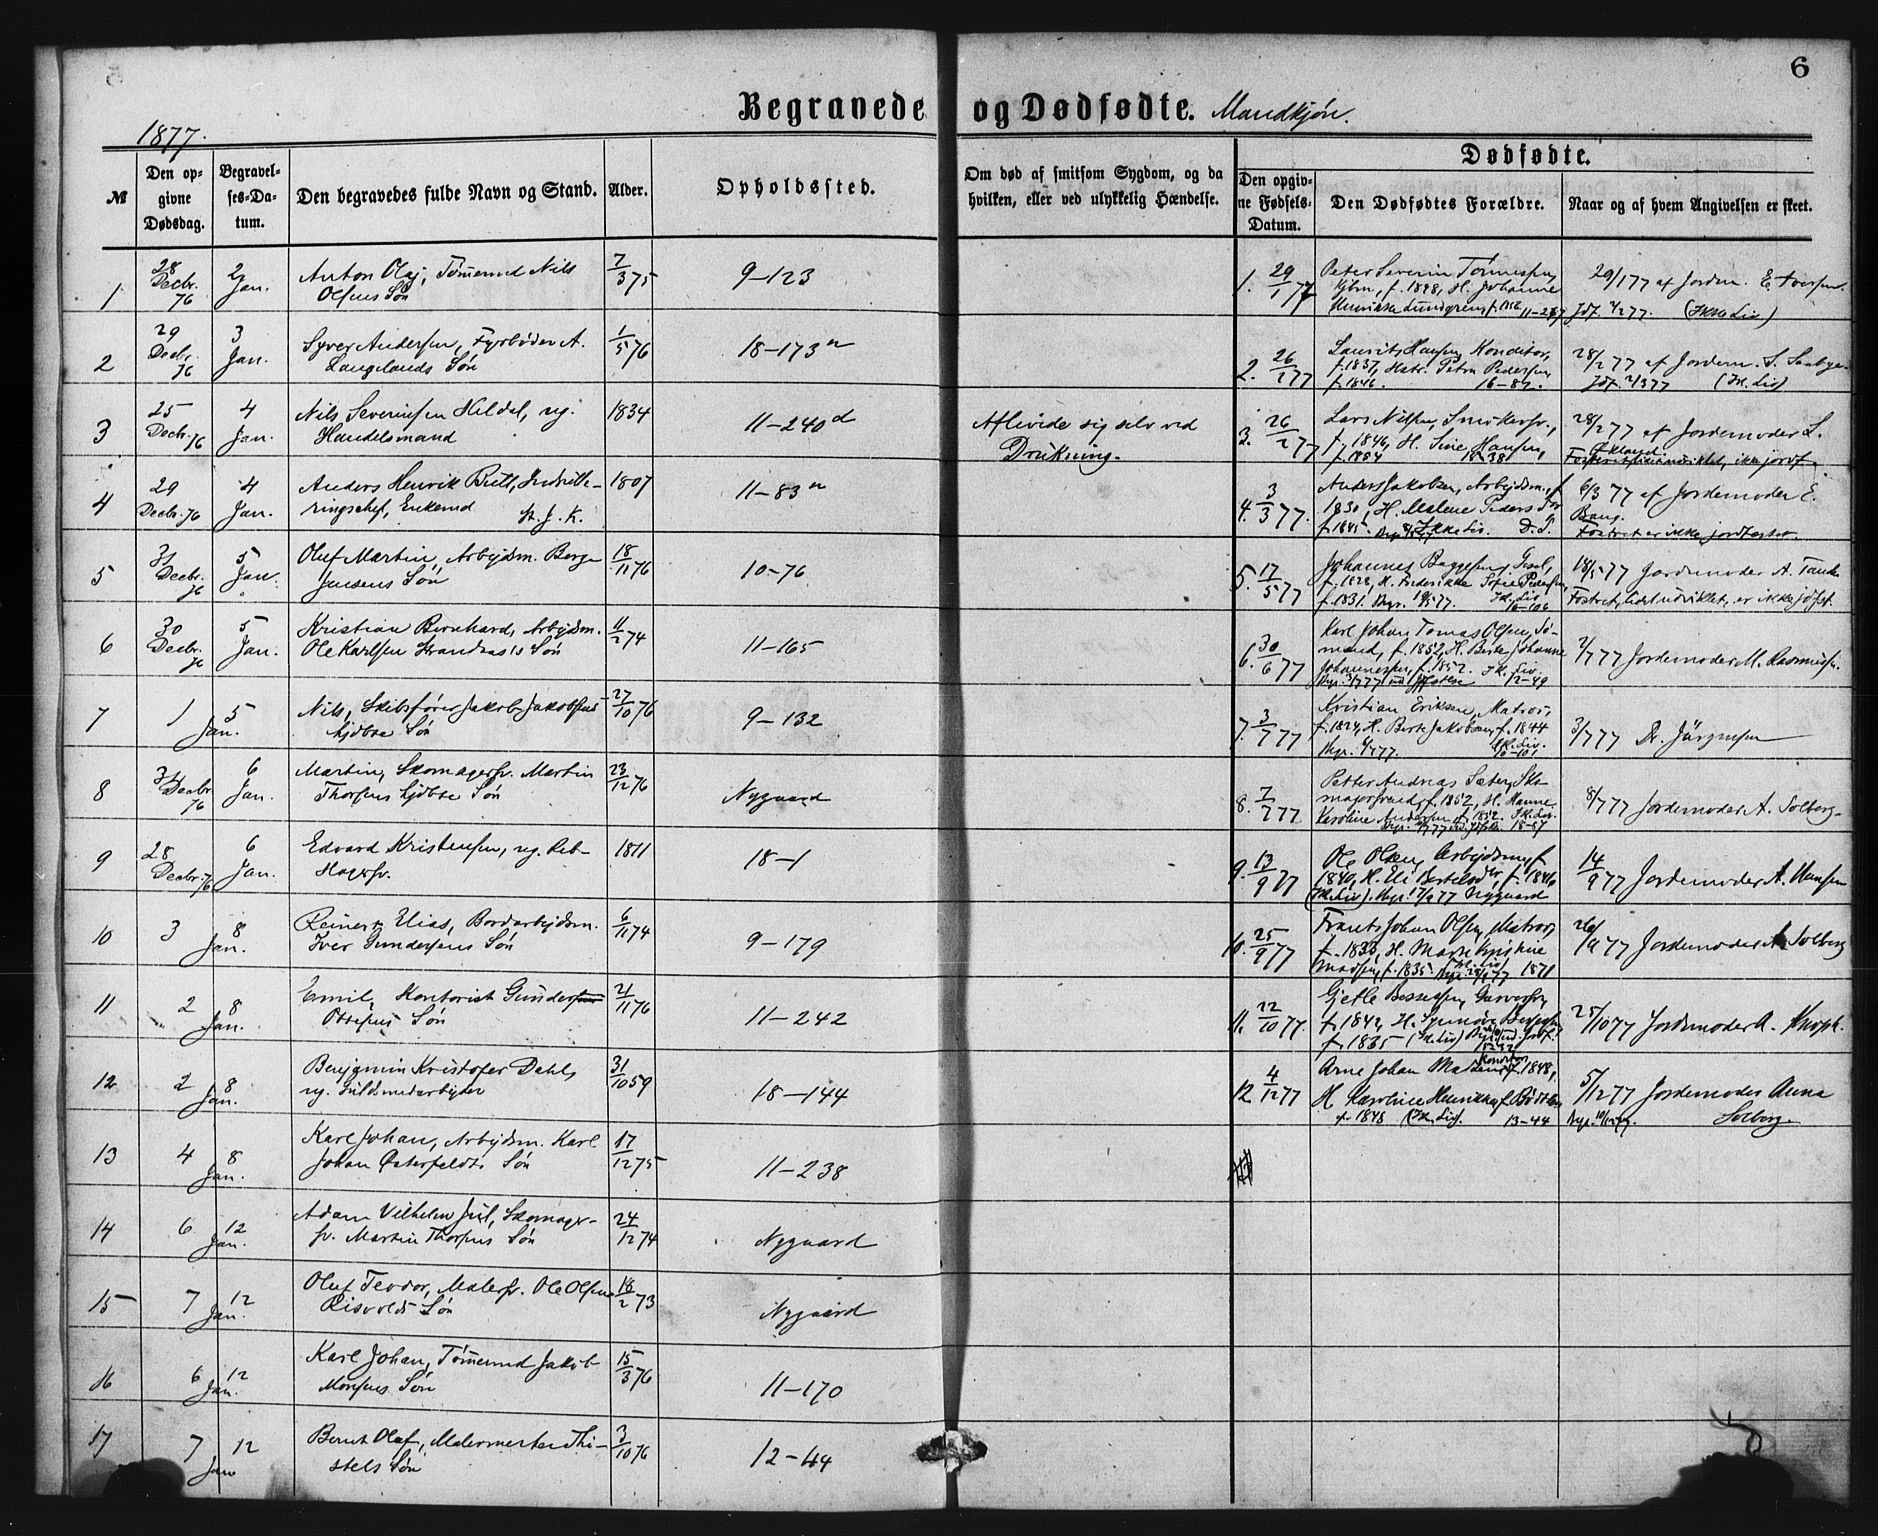 6
Begravede og Dødfødte. Mandkjøn.
1877.
№
Den op-
givne
Dødsdag.
Begravel-
ses-Da-
tum.
Den begravedes fulde Navn og Stand.
Alder.
Opholdssted.
Om død af smitsom Sygdom, og da
hvilken, eller ved ulykkelig Hændelse.
Dødfødte.
Den opgiv-
ne Fødsels-
Datum.
Den Dødfødtes Forældre.
Naar og af hvem Angivelsen er skeet.
1 28 Decbr. 76 2 Jan. Anton Olaj, Tømmermd Nils 7/3 75 9-123
Olsens Søn
2 29 Decbr. 76 3 Jan. Syver Andersen, Fyrbøder A. 1/5 76 18-173a
Langelands Søn
3 25 Decbr. 76 4 Jan. Nils Severinsen Hildal, ug. 1834 11-240d Aflivede sig selv ved
Handelsmand Drukning.
4 29 Decbr. 76 4 Jan. Anders Henrik Bull, Indrulle- 1807 11-83a
ringschef, Enkemd St. J. K.
5 31 Decbr. 76 5 Jan. Oluf Martin, Arbejdsm. Berge 18/11 76 10-76
Jensens Søn
6 30 Decbr. 76 5 Jan. Kristian Bernhard, Arbejdsm. 11/2 74 11-165
Ole Karlsen Strandnæs's Søn
7 1 Jan. 5 Nils, Skibsfører Jakob Jakobsens 27/10 76 9-132
hjdbte Søn
8 31 Decbr. 76 6 Jan. Martin, Skomagersv. Martin 23/12 76 Nygaard
Thorsens hjdbte Søn
9 28 Decbr. 76 6 Jan. Edvard Kristensen, ug. Reb- 1811 18-1
slagersv.
10 3 8 Jan. Reinert Elias, Bordarbejdsm. 6/11 74 9-179
Iver Gundersens Søn
11 2 8 Jan. Emil, Kontorist Gunder 21/11 76 11-242
Ottesens Søn
12 2 8 Jan. Benjamin Kristofer Dahl, 31/10 59 18-144
ug. Guldsmedarbejder
13 4 8 Jan. Karl Johan, Arbejdsm. Karl 17/12 75 11-238
Johan Østerfeldts Søn
14 6 12 Jan. Adam Vilhelm Jul, Skomager- 24/12 74 Nygaard
sv. Martin Thorsens Søn
15 7 12 Jan. Oluf Teodor, Malersv. Ole Olsen 18/2 73 Nygaard
Risvolds Søn
16 6 12 Jan. Karl Johan, Tømmermd Jakob 15/3 76 11-170
Monsens Søn
17 7 12 Jan Bernt Olaf, Malermester Thi- 3/10 76 12-44
stels Søn
1. 29/1 77 Peter Severin Tønnesen 29/1 77 af Jordm. E. Iversen.
f. 1848, H. Johanne
Henrikke Lundgren, f. 11-267 Jdf. 4/2 77. (Ikke Liv)
2. 26/2 77 Laurits Hansen, Konditor, 28/2 77 af Jordem. S. Saabye.
f. 1837, Hstr. Petra Pedersen,
f. 1846. 16-87. Jdf. 2/3 77 (Ik. Liv)
3. 26/2 77 Lars Nilsen, 28/2 77 af Jordemoder L.
f. 1846, H. Sine Hansen, Økland.
ikke jordf.
4. 3/3 77. Anders Jakobsen, Arbejdsm., f. 6/3 77 af Jordemoder E.
1830, H. Malene Pedersdtr Bang.
f. 1845. Ikke Liv. D. S. Fostret er ikke jordfæstet.
5. 17/5 77 Johannes Baggesen 18/5 77 Jordemoder A. Tanke
f. 1828, H. Frederikke Sofie Pedersen,
f. 1831. Begr. 19/5 77. Ik. Liv 16-106 Fostret, lidet udviklet, er ikke jdfst.
6. 30/6 77 Karl Johan Tomas Olsen, Sø- 2/7 77 Jordemoder M. Rasmussen.
mand, f. 1852, H. Berte Johanne
Johannesen, f. 1852. Ik. Liv.
Begr. 3/7 77 ud. Jfstelse 12-49
7. 3/7 77 Kristian Eriksen, Matros, 3/7 77 Dr. Jürgensen
f. 1824, H. Berte Jakobsen, f. 1844
Begr. 6/7 77. Ik. Liv.
8. 7/7 77 Petter Andreas Sæter, Sko- 8/7 77 Jordemoder A. Solberg.
magersvend, f. 1852, H. Hanne
Karoline Andersen, f. 1852. Ik. Liv.
18-57
9. 13/9 77 Ole Olsen, Arbejdsm., f. 14/9 77 Jordemoder A. Hansen
1840, H. Eli Bertelsdtr, f. 1846
(Ik. Liv). Begr. 17/9 77 Nygaard
10. 25/9 77 Frants Johan Olsen, Matros, 26/9 77 Jordemoder A. Solberg
f. 1833, H. Marte Kristine
Madsen, f. 1835. Ik. Liv
11. 22/10 77. Gjetle Bessesen, Garversv., 25/10 77 Jordemoder A. Knoph.
f. 1842, H.
f. 1835 (Ik. Liv)
12. 4/12 77 Arne Johan Madsen, Konditor f. 1848, 5/12 77 Jordemoder Anna
H. Karoline Henrikke f. Bødtker Solberg.
f. 1848 (Ik. Liv). 13-44 Begr. 10/12 77.